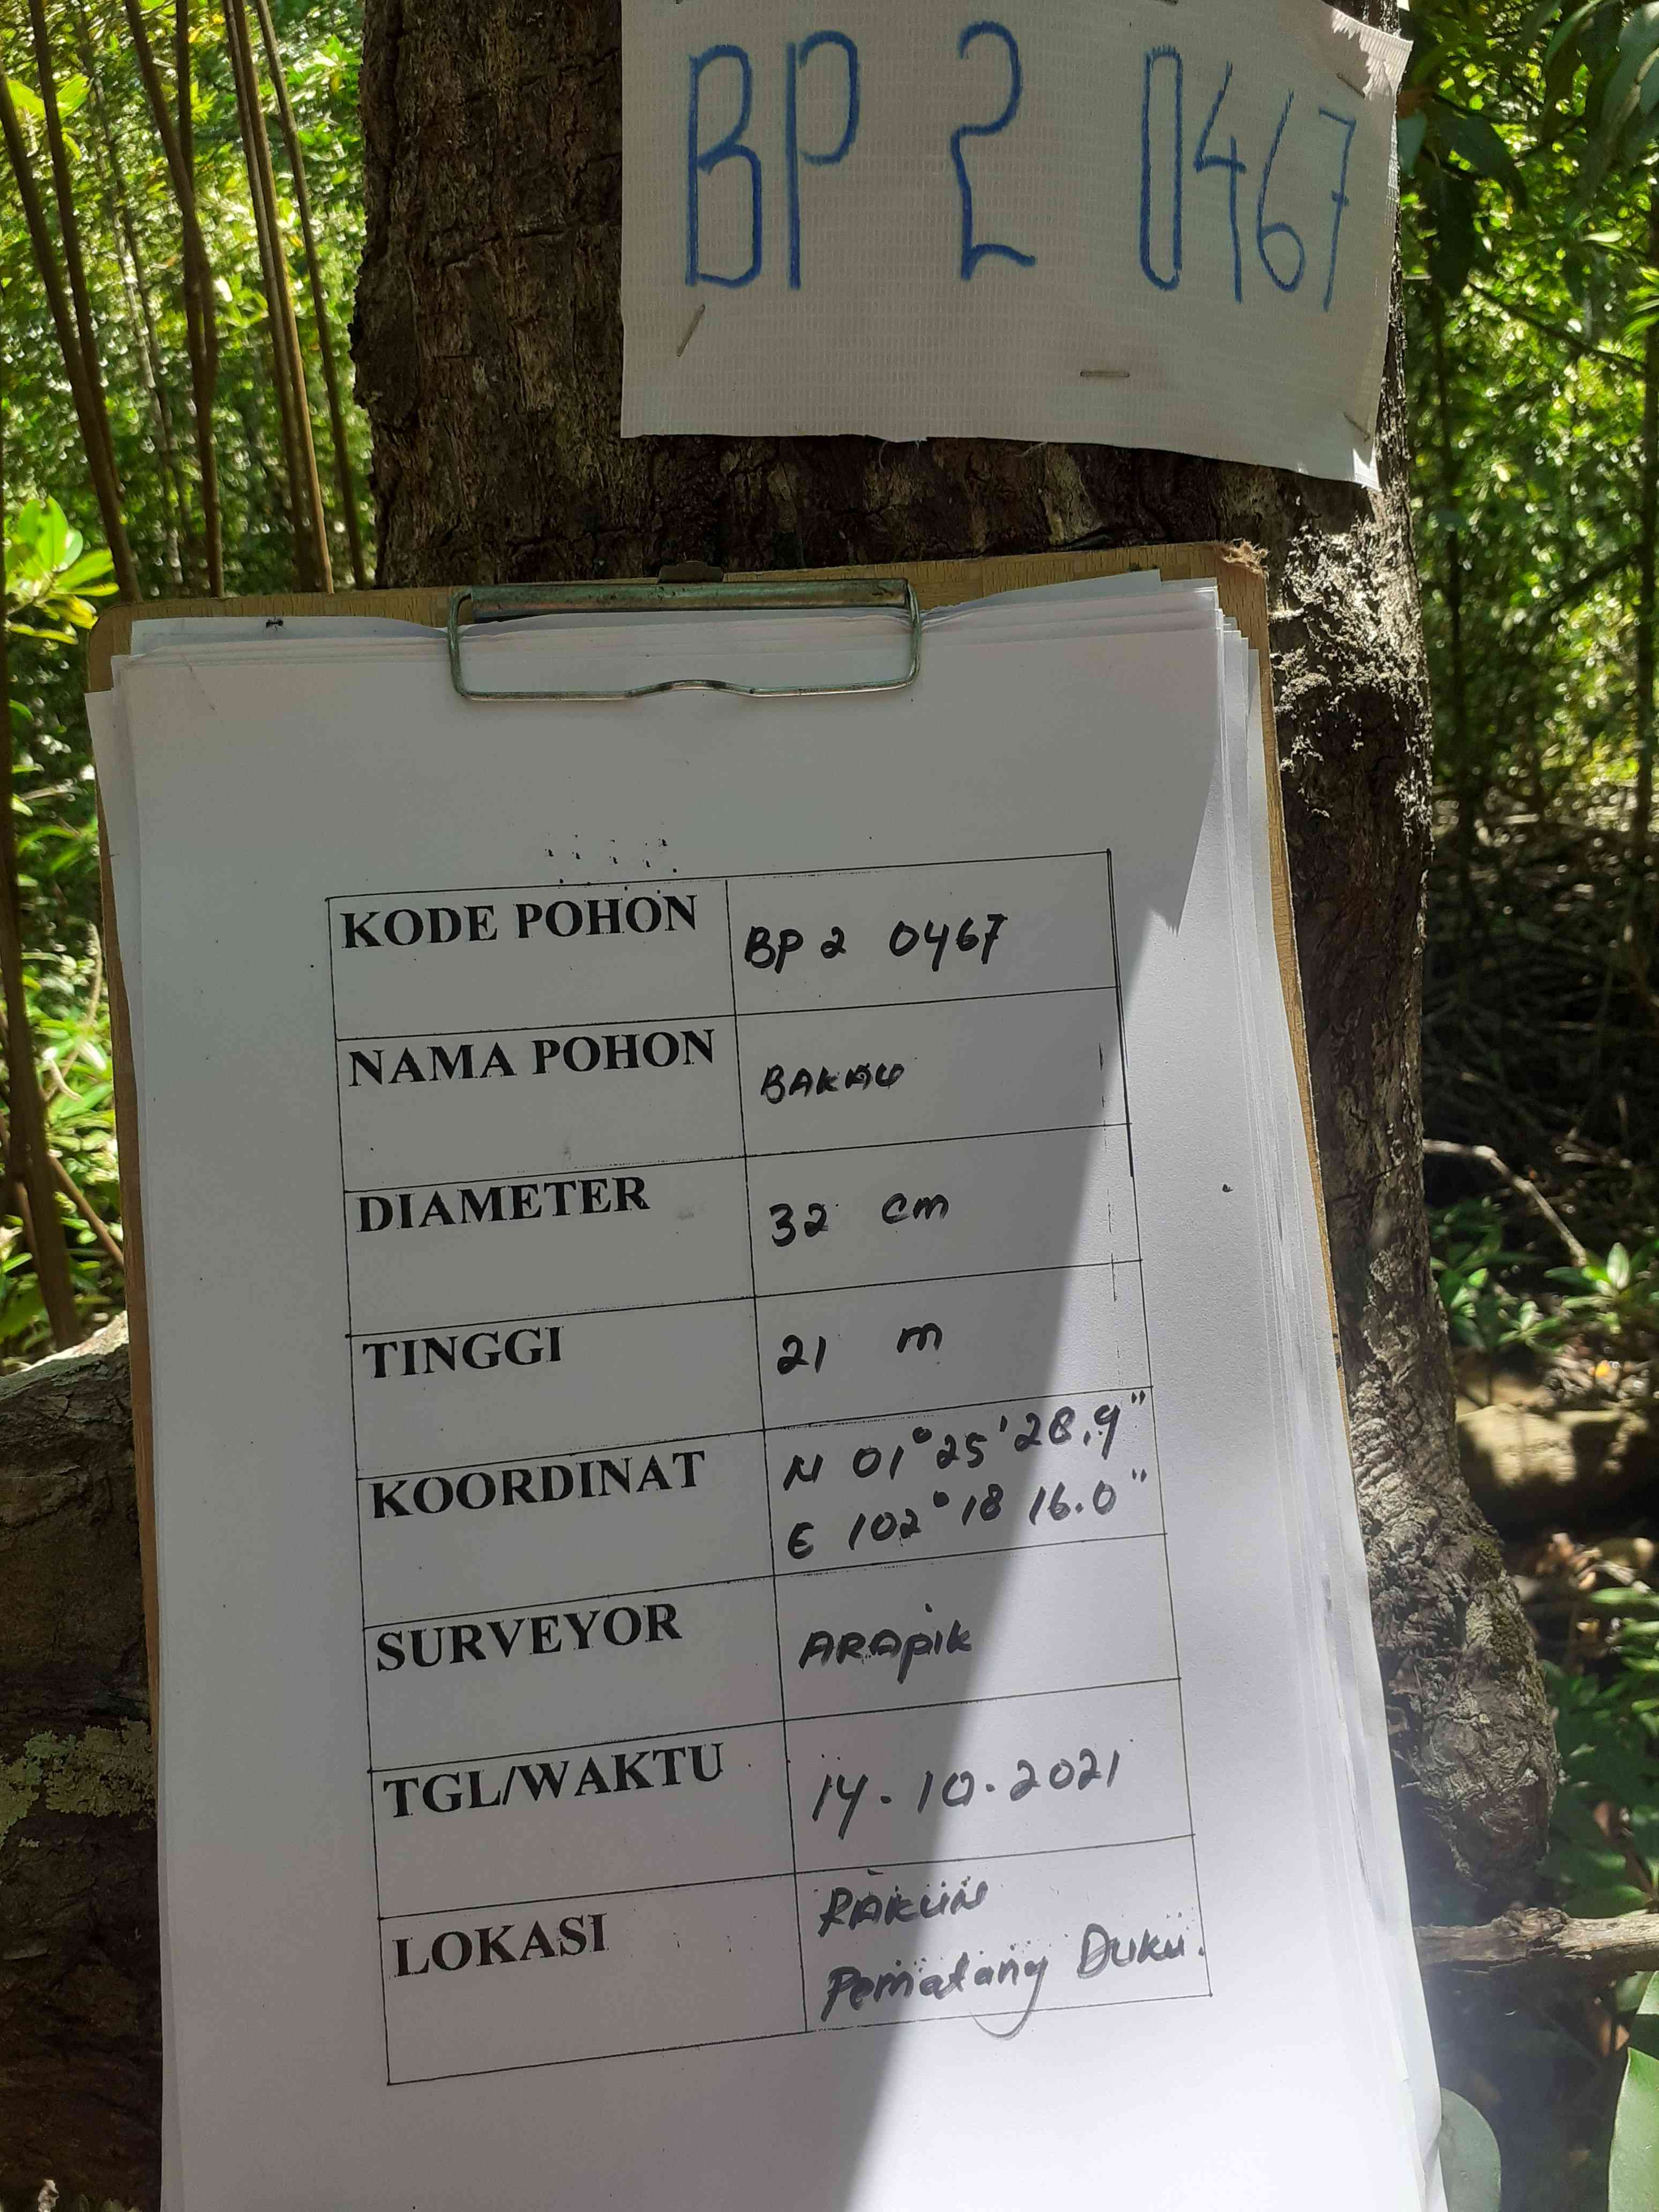 BP 2 0467
KODE POHON BP 2 0467
NAMA POHON BAKAU
DIAMETER 32 cm
TINGGI 21 m
KOORDINAT N 01° 25' 28.9"
E 102° 18 16.0"
SURVEYOR ARApik
TGL/WAKTU 14.10.2021
LOKASI RAKUN
Pematang Duku.